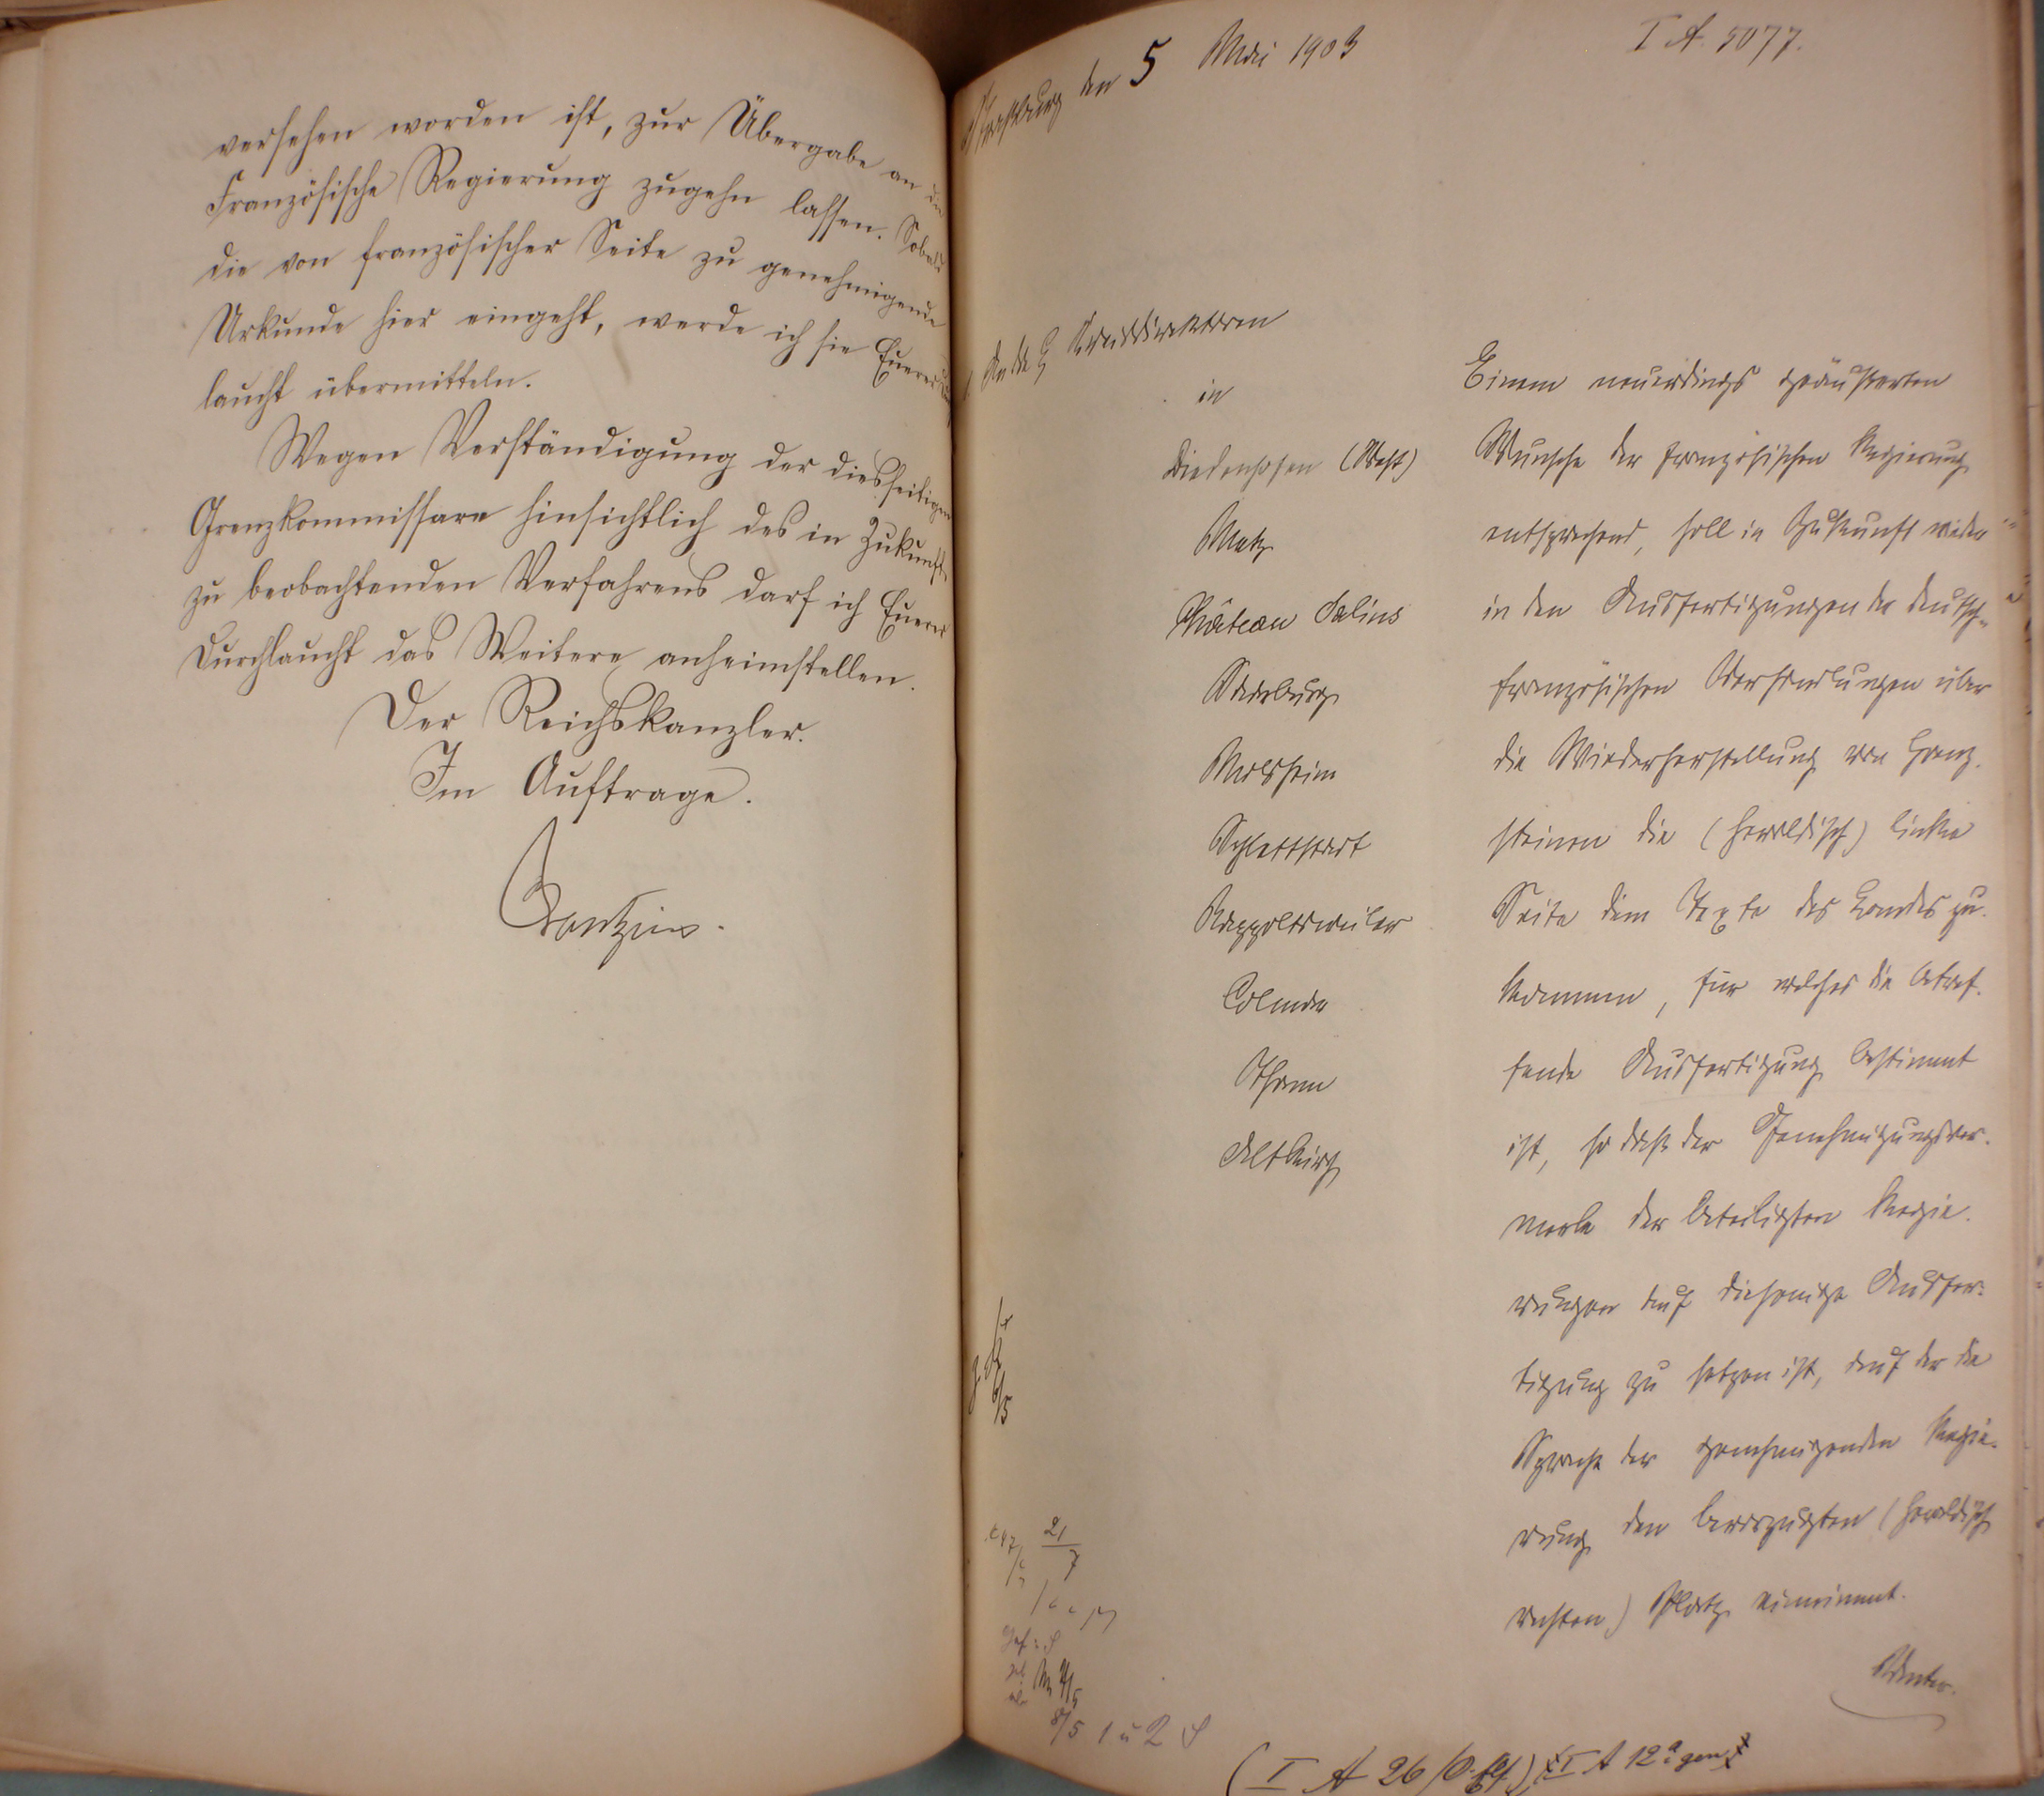 versehen worden ist, zur Übergabe an die
Französische Regierung zugehn lassen. Sobald
die von französischer Seite zu genehmigende
Urkunde hier eingeht, werde ich sie Euerer Durch
laucht übermitteln.
Wegen Verständigung der diesseitigen
Grenzkommissare hinsichtlich des in Zukunft
zu beobachtenden Verfahrens darf ich Euerer
Durchlaucht das Weitere anheimstellen.
Der Reichskanzler.
Im Auftrage.
Straßburg den 5 Mai 1903
I A. 5077.
1. An die Kreisdirektoren
in
Diedenhofen (West)
Metz
Château Salins
Saarburg
Molsheim
Schlettstadt
Rappoltsweiler
Colmar
Thann
Altkirch
Einem neuerdings geäußerten
Wunsche der französischen Regierung
entsprechend, soll in Zukunft wieder
in den Ausfertigungen der deutsch-
französischen Verhandlungen über
die Wiederherstellung von Grenz-
steinen die (heraldisch) linke
Seite dem Texte des Landes zu-
kommen, für welches die betref-
fende Ausfertigung bestimmt
ist, so daß der Genehmigungsver-
merk der beteiligten Regie-
rungen auf diejenige Ausfer-
tigung zu setzen ist, auf der die
Sprache der genehmigenden Regie-
rung den bevorzugten (heraldisch
rechten) Platz einnimmt.
6/5
21/7
8/5 1 u 2
(I A 26 I A 12a gen